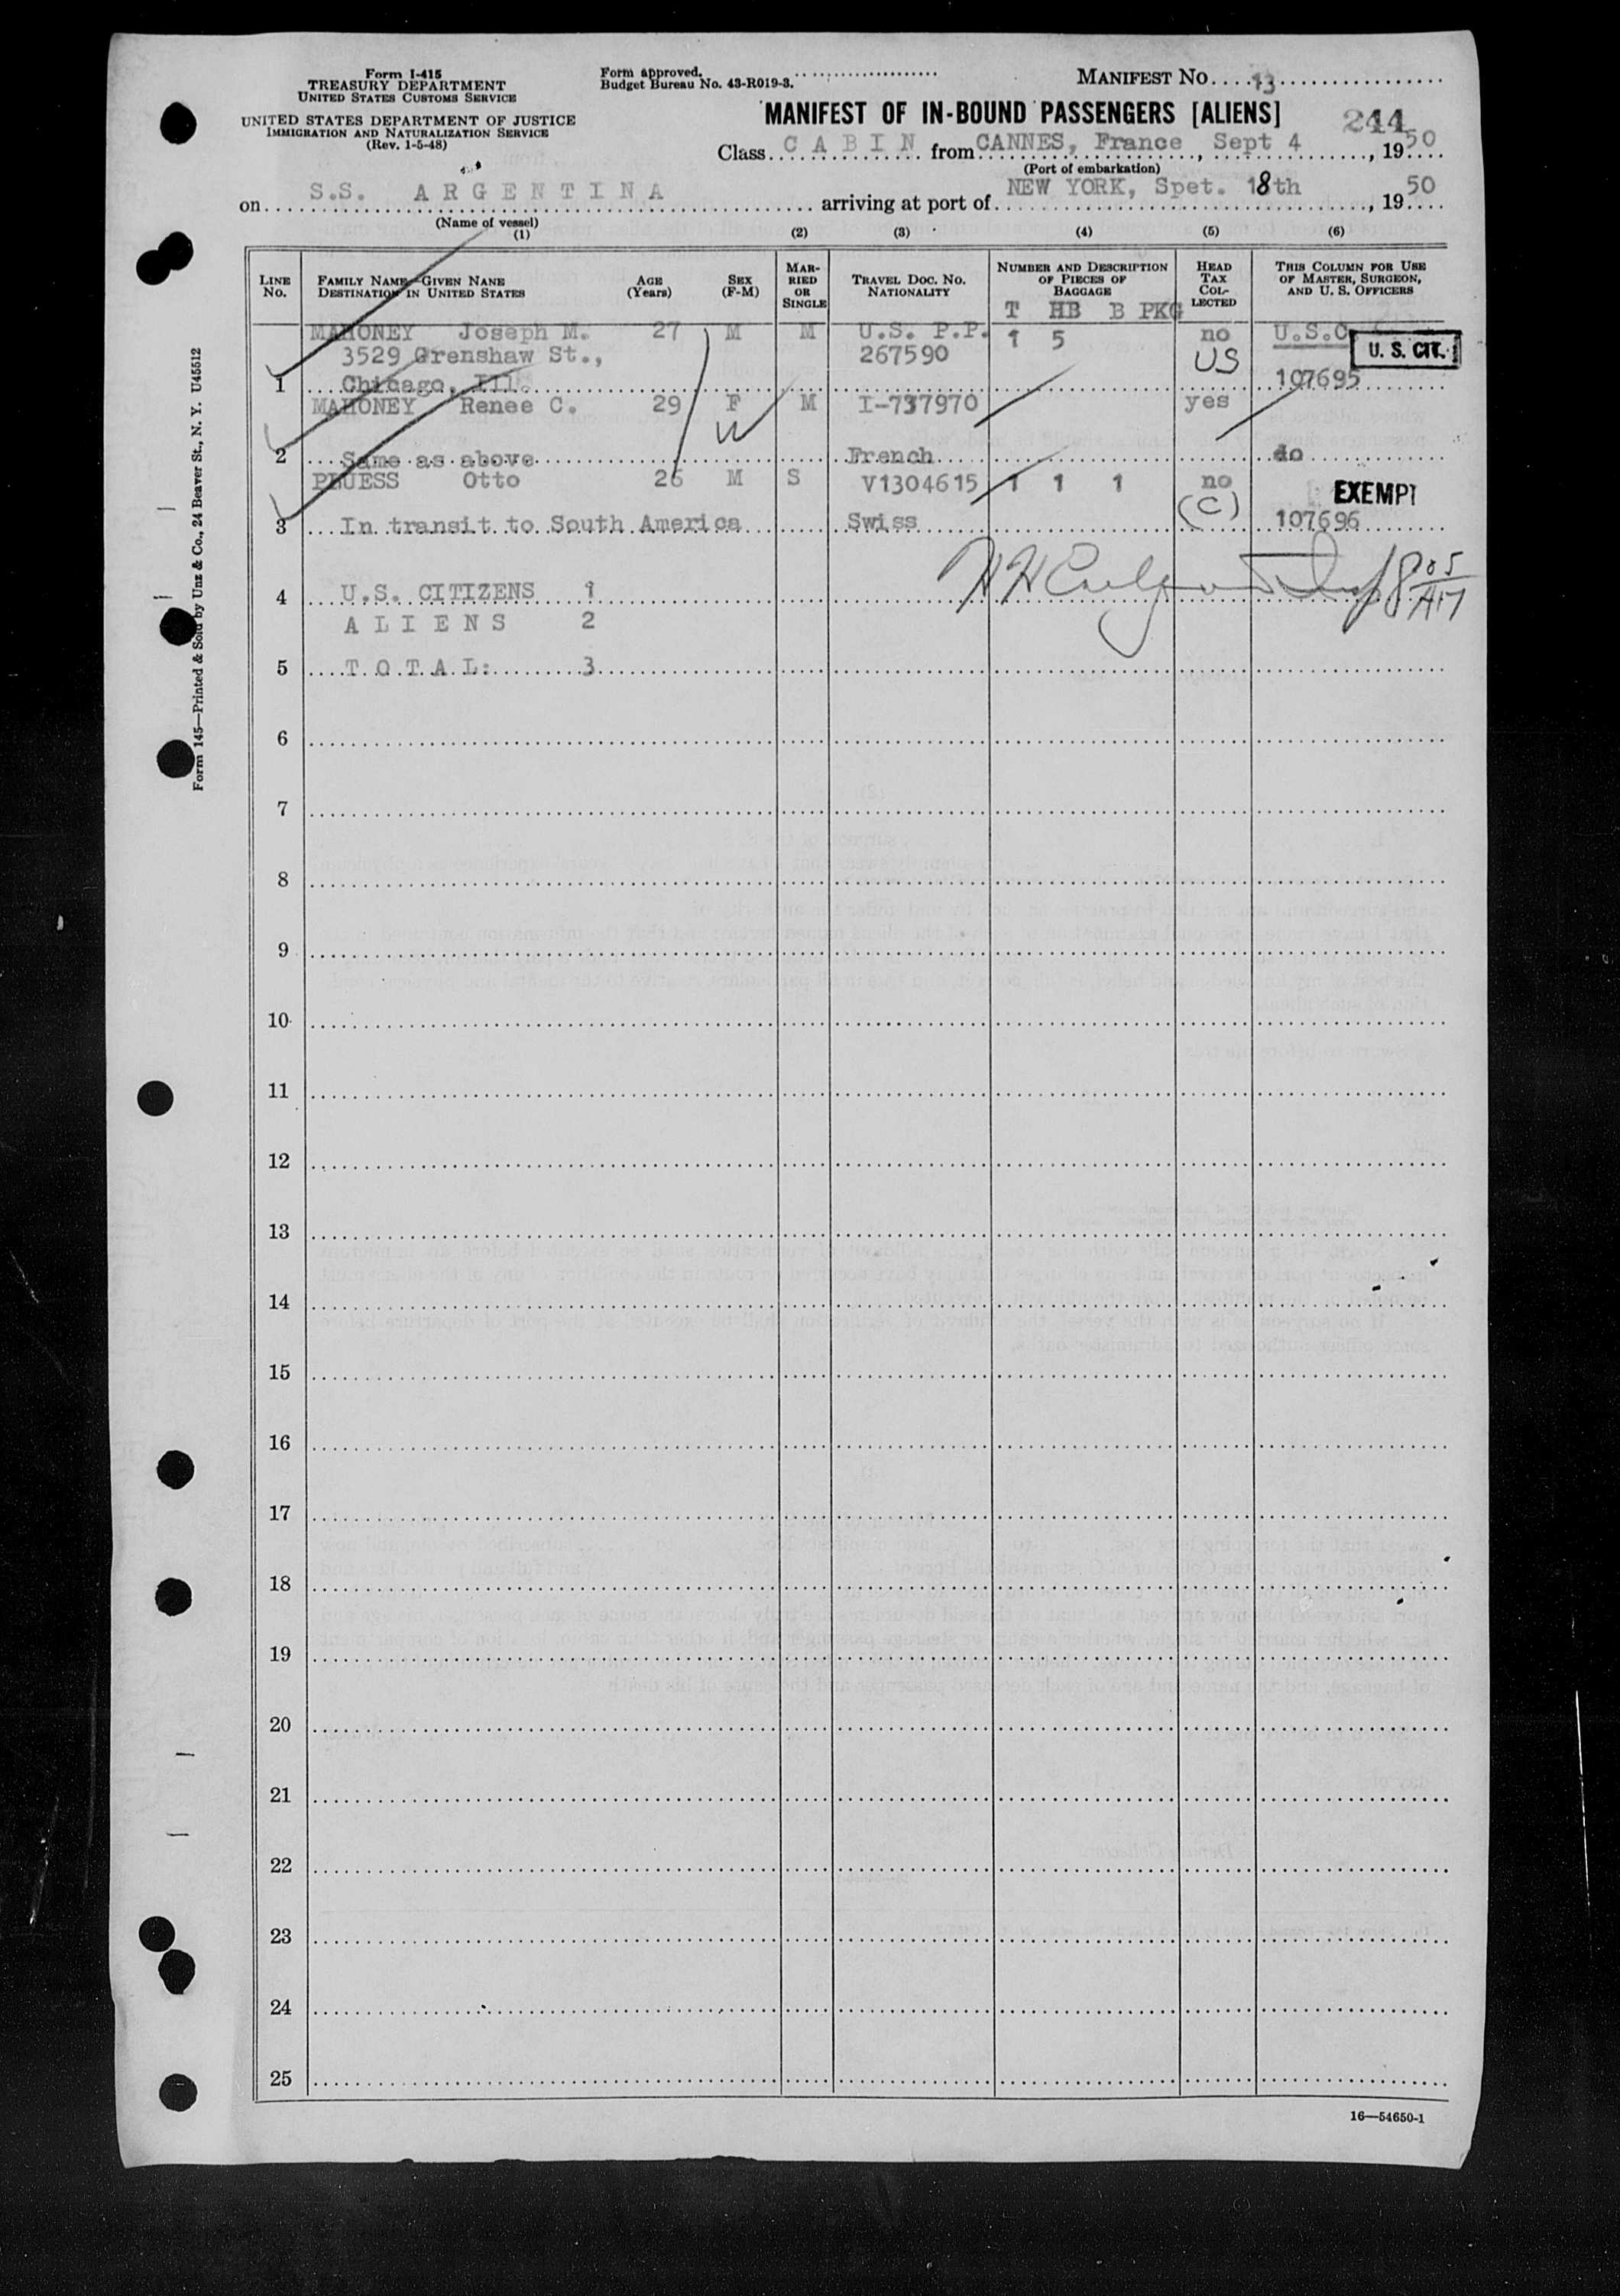 Form I-415
TREASURY DEPARTMENT
UNITED STATES CUSTOMS SERVICE
UNITED STATES DEPARTMENT OF JUSTICE
IMMIGRATION AND NATURALIZATION SERVICE
(Rev. 1-5-48)
Form approved.
Budget Bureau No. 43-R019-3.
MANIFEST NO. 13
MANIFEST OF IN-BOUND PASSENGERS [ALIENS]
244
Class CABIN from CANNES, France, Sept 4, 1950
(Port of embarkation)
on S.S. ARGENTINA arriving at port of NEW YORK, Spet. 18th, 1950
(Name of vessel)
(1) (2) (3) (4) (5) (6)
LINE NO.
FAMILY NAME—GIVEN NAME
DESTINATION IN UNITED STATES
AGE (Years)
SEX (F-M)
MARRIED OR SINGLE
TRAVEL DOC. NO. NATIONALITY
NUMBER AND DESCRIPTION OF PIECES OF BAGGAGE
T HB B PKG
HEAD TAX COLLECTED
THIS COLUMN FOR USE OF MASTER, SURGEON, AND U. S. OFFICERS
MAHONEY Joseph M. 27 M M U.S. P.P. 1 5 no U.S.C.
3529 Grenshaw St., 267590 US U. S. CIT.
1 Chicago, Ill. 107695
MAHONEY Renee C. 29 F M I-737970 yes
W
2 Same as above French do
PLUESS Otto 26 M S V1304615 1 1 1 no EXEMPT
(C)
3 In transit to South America Swiss 107696
4 U.S. CITIZENS 1
ALIENS 2
5 TOTAL: 3
6
7
8
9
10
11
12
13
14
15
16
17
18
19
20
21
22
23
24
25
16—54650-1
Form 145—Printed & Sold by Unz & Co., 24 Beaver St., N. Y. U45512